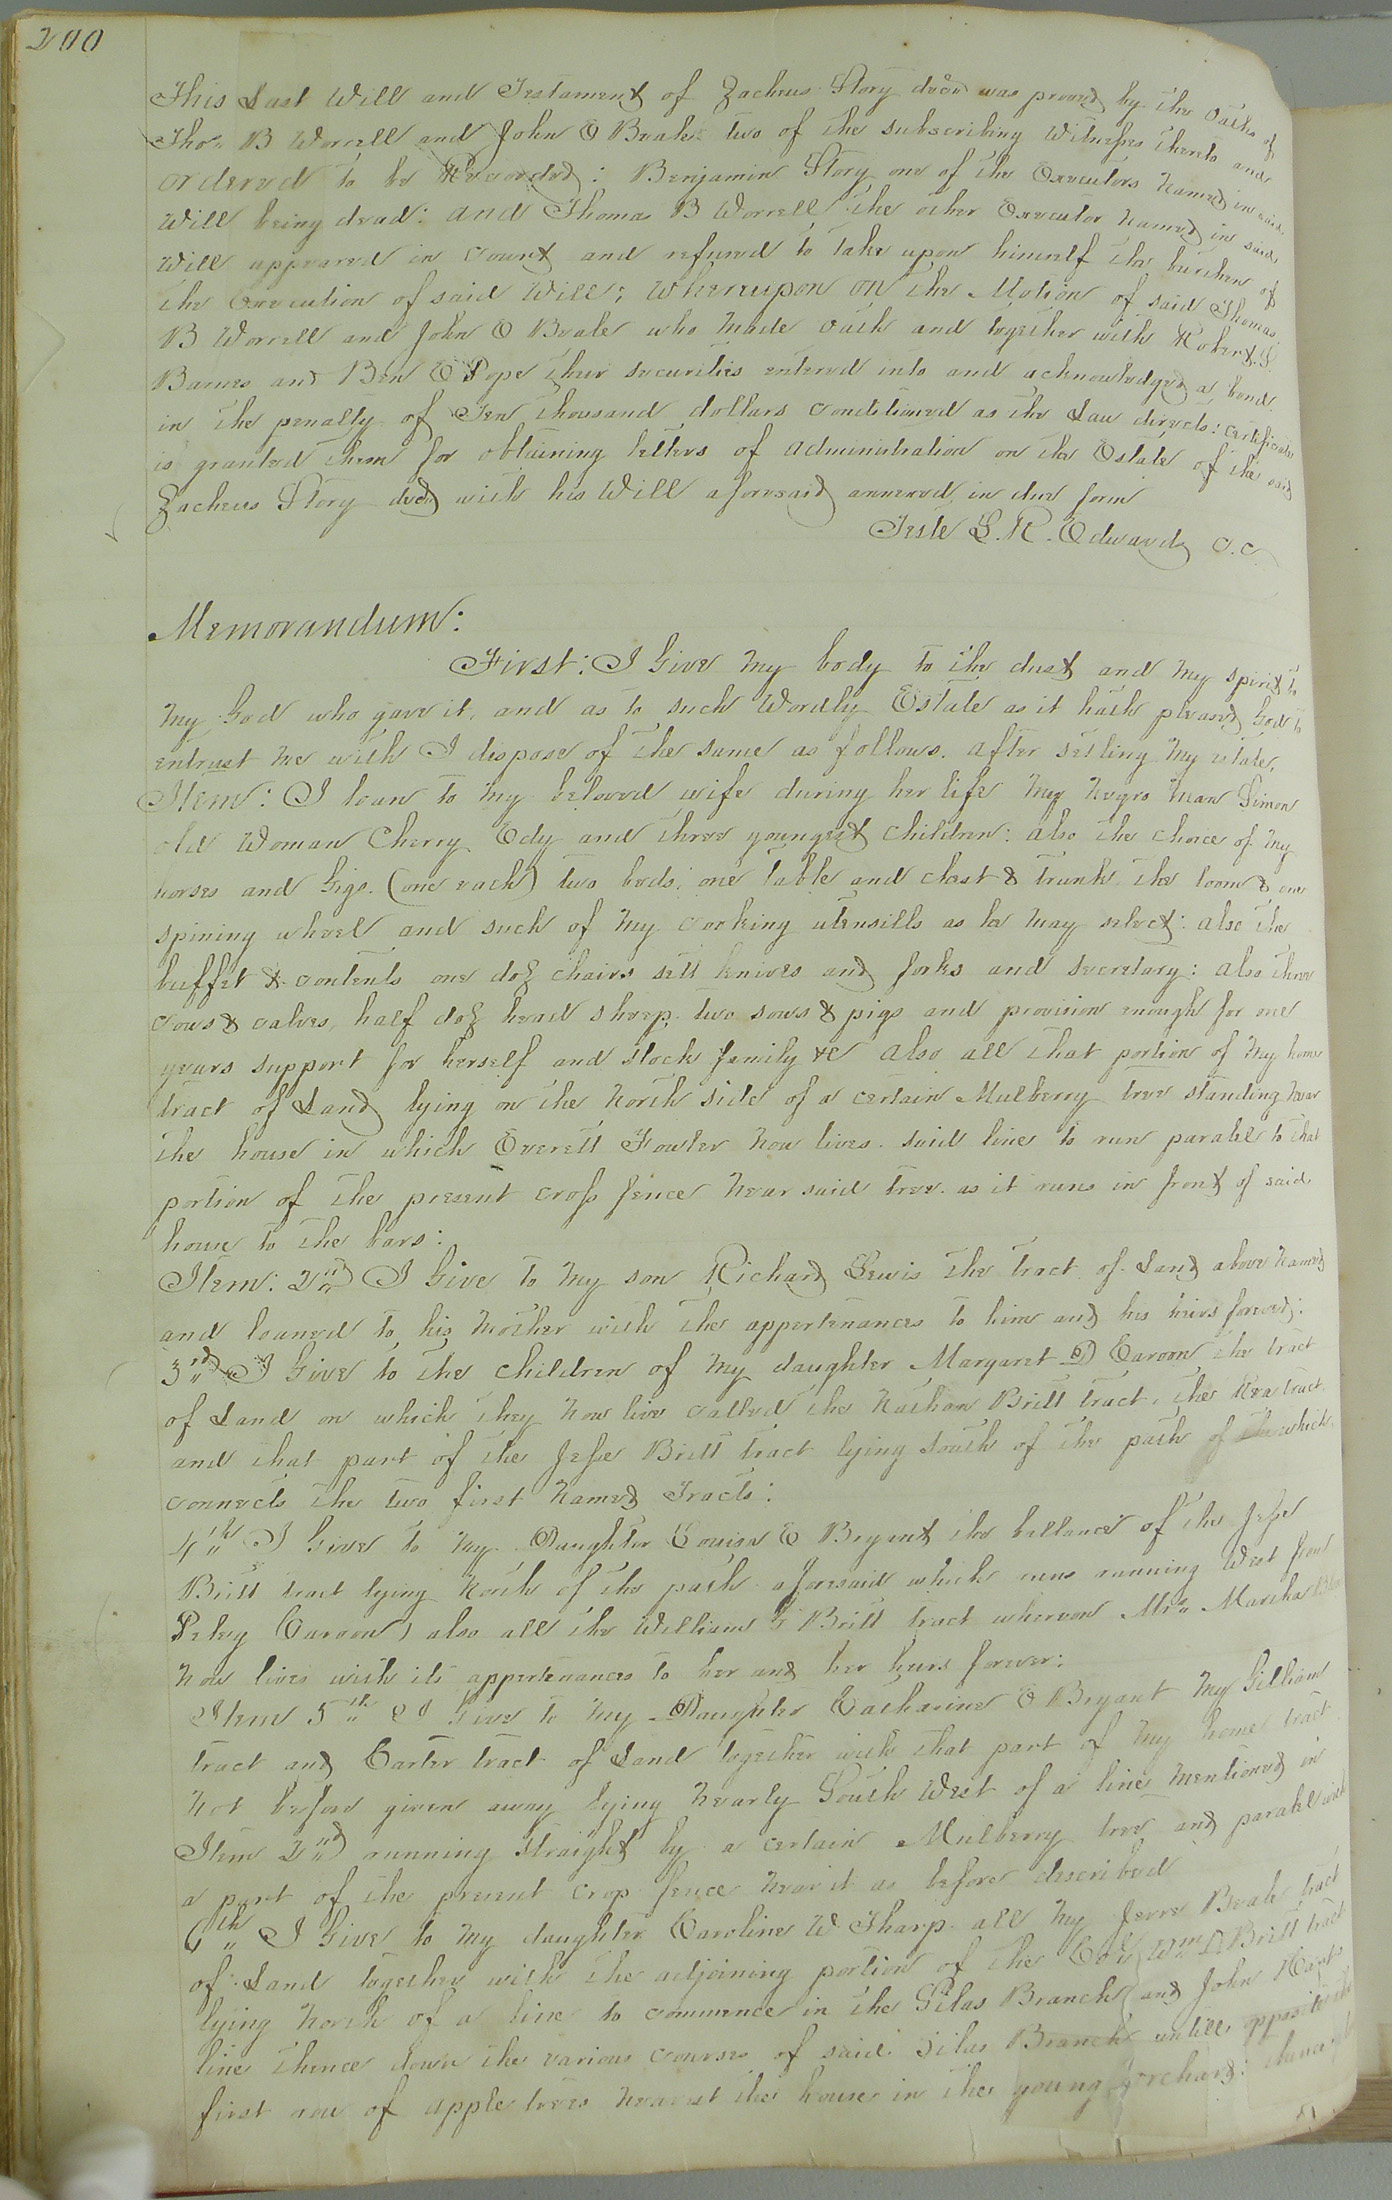 200
This Last Will and Testament of Zacheus Story decd was proved by the oaths of
Thos. B Worrell and John E Beale two of the subscribing Witnesses thereto and
ordered to be Recorded: Benjamin Story one of the Executors named in said
Will being dead: and Thomas B Worrell the other Executor named in said
Will appeared in Court and refused to take upon himself the burthen of
the execution of said Will; Whereupon on the Motion of said Thomas
B Worrell and John E Beale who made oath and together with Robert S
Barnes and Ben E Pope their securities entered into and acknowledged a bond
in the penalty of Ten thousand dollars conditioned as the Law directs: certificate
is granted them for obtaining letters of administration on the Estate of the said
Zacheus Story decd with his Will aforesaid annexed in due form
Teste L. R. Edwards C.C
Memorandum:
First: I Give my body to the dust and my spirit to
my God who gave it, and as to such Wordly Estate as it hath pleased God to
entrust me with I dispose of the same as follows. after setling my estate,
Item: I loan to my beloved wife during her life my negro man Simon
old woman Cherry Edy and three youngest children: also the choice of my
horses and Gigs. (one each) two beds, one table and chest & trunk the loom & one
spining wheel and such of my cooking utensills as he may select: also the
buffet & contents one doz chairs sett knives and forks and secretary: also three
cows & calves, half doz head sheep. two sows & pigs and provision enough for one
years support for herself and stock family &c also all that portion of my home
tract of Land lying on the north side of a certain Mulberry tree standing near
the house in which Everett Fowler now lives. said line to run paralel to that
portion of the present cross fence near said tree. as it runs in front of said
house to the bars:
Item: 2nd I Give to my son Richard Lewis the tract of Land above named
and loaned to his mother with the appertenances to him and his heirs forever:
3rd I Give to the children of my daughter Margaret D Earoon the tract
of Land on which they now live called the Nathan Britt tract, the tract
and that part of the Jesse Britt tract lying South of the path of the which
connects the two first named Tracts:
4th I Give to my Daughter Louisa E Bryant the ballance of the Jesse
Britt tract lying North of the path aforesaid which runs running West from
Peley Earoon, also all the William Britt tract whereon Mrs. Martha
now lives with its appertenances to her and her heirs forever:
Item 5th I Give to my Daughter Catharine E Bryant my Gilliam
tract and Carter tract of Land together with that part of my home tract
not before given away lying nearly South West of a line mentioned in
Item 2nd running straight by a certain Mulberry tree and paralel with
a part of the present crop fence near it as before described
6th I Give to my daughter Caroline W Tharp all my Jerre Beale tract
of Land together with the adjoining portion of the Wm D Britt tract
lying North of a line to commence in the Silas Branch and John Hart
line thence down the various courses of said Silas Branch untill opposite the
first row of apple trees nearest the house in the young orchard: thence